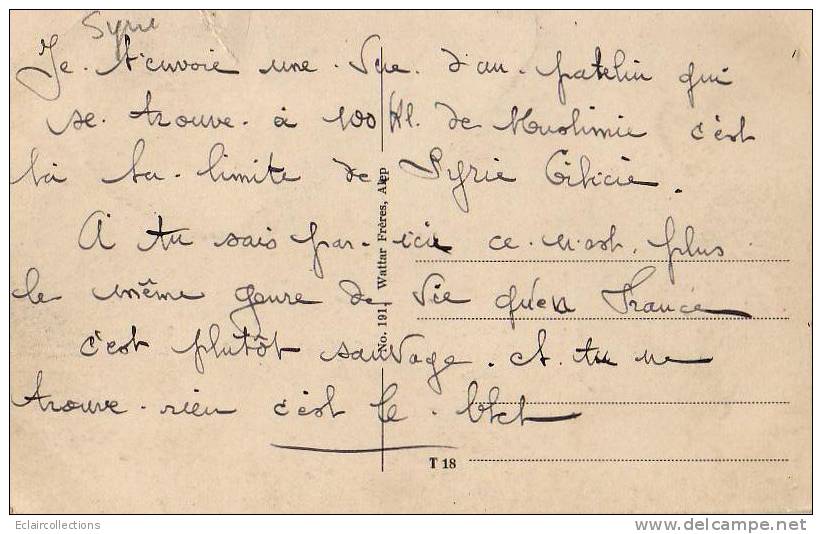 Syrie
Je t'envoie une vue d'un patelin qui
se trouve à 100 Kl. de Muslimié c'est
la la limite de Syrie Cilicie.
A tu sais par ici ce n'est plus
le même genre de vie qu'en France
c'est plutôt sauvage. et tu ne
trouve rien c'est le
No. 191 Wattar Frères, Alep
T 18
Eclaircollections
www.delcampe.net